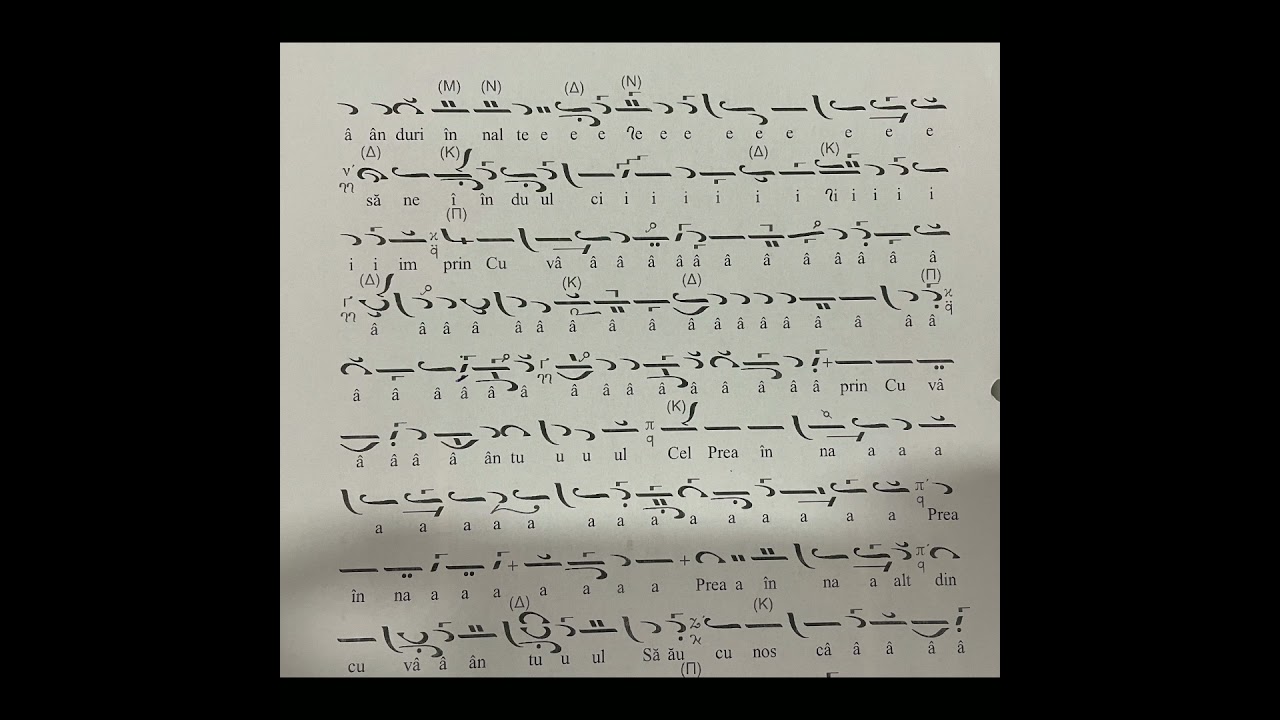 (M) (N) (Δ) (N)
â ân duri în nal te e e e ʔe e e e e e e e e
(Δ) (K) (Δ) (K)
să ne î în du ul ci i i i i i i ʔi i i i i
(Π)
i i im prin Cu vâ â â â â â â â â â â â â
(Δ) (K) (Δ) (Π)
â â â â â â â â â â â â â â â â â
â â â â â â â â â â â â â â â prin Cu vâ
(K)
â â â â ân tu u u ul Cel Prea în na a a a
a a a a a a a a a a a a a a Prea
în na a a a a a a a Prea a în na a alt din
(Δ) (K)
cu vâ â ân tu u ul Să ău cu nos câ â â â â
(Π)